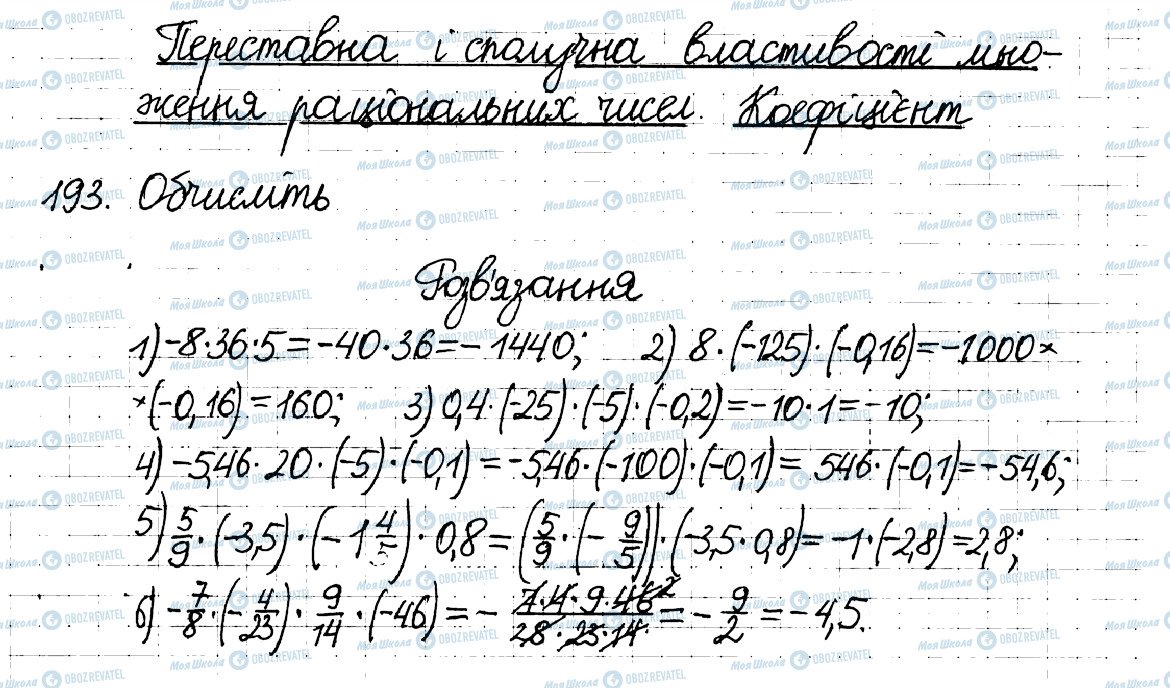 Переставна і сполучна властивості мно-
ження раціональних чисел. Коефіцієнт
193. Обчисліть
Розв'язання
1) -8·36·5=-40·36=-1440; 2) 8·(-125)·(-0,16)=-1000×
×(-0,16)=160; 3) 0,4·(-25)·(-5)·(-0,2)=-10·1=-10;
4) -5,46·20·(-5)·(-0,1)=-5,46·(-100)·(-0,1)=546·(-0,1)=-54,6;
5) 5/9·(-3,5)·(-1 4/5)·0,8=(5/9·(-9/5))·(-3,5·0,8)=-1·(-2,8)=2,8;
6) -7/8·(-4/23)·9/14·(-46)=-(7·4·9·46 2)/(28·23·14·)=-9/2=-4,5.
МояШкола OBOZREVATEL